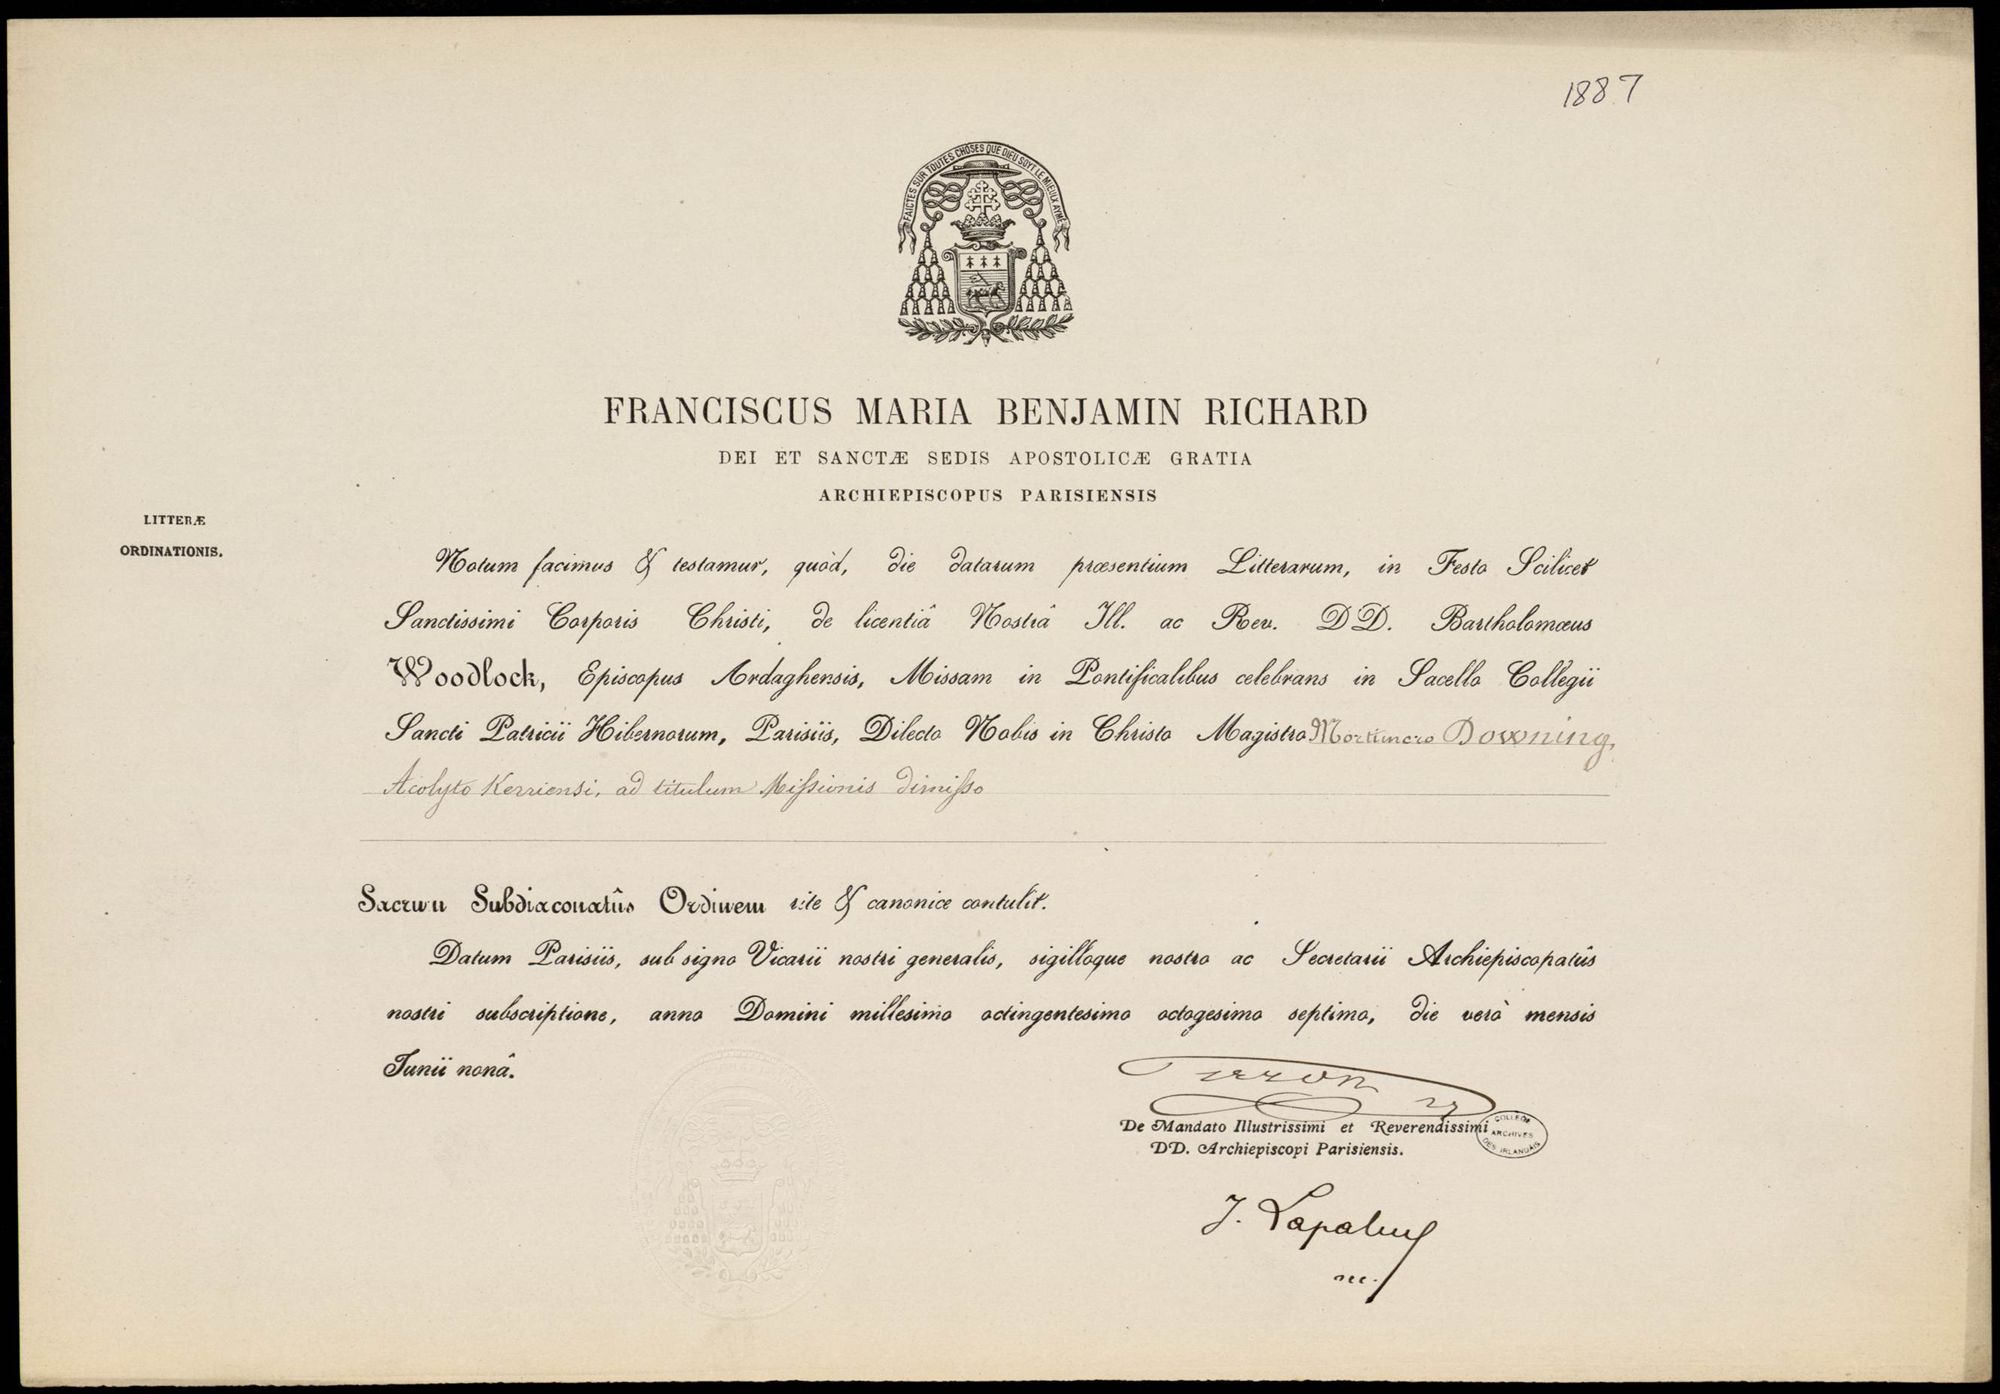 1887
FAICTES SUR TOUTES CHOSES QUE DIEU SOYT LE MIEUX AYMÉ
FRANCISCUS MARIA BENJAMIN RICHARD
DEI ET SANCTÆ SEDIS APOSTOLICÆ GRATIA
ARCHIEPISCOPUS PARISIENSIS
LITTERÆ
ORDINATIONIS.
Notum facimus & testamur, quòd, die datarum præsentium Litterarum, in Festo Scilicet
Sanctissimi Corporis Christi, de licentiâ Nostrâ Ill. ac Rev. DD. Bartholomæus
Woodlock, Episcopus Ardaghensis, Missam in Pontificalibus celebrans in Sacello Collegii
Sancti Patricii Hibernorum, Parisiis, Dilecto Nobis in Christo Magistro Mortimero Downing,
Acolyto Kerriensi, ad titulum Missionis dimisso
Sacrum Subdiaconatûs Ordinem rite & canonice contulit.
Datum Parisiis, sub signo Vicarii nostri generalis, sigilloque nostro ac Secretarii Archiepiscopatûs
nostri subscriptione, anno Domini millesimo octingentesimo octogesimo septimo, die verò mensis
Junii nonâ.
De Mandato Illustrissimi et Reverendissimi
DD. Archiepiscopi Parisiensis.
COLLEGE
ARCHIVES
DES IRLANDAIS
J.